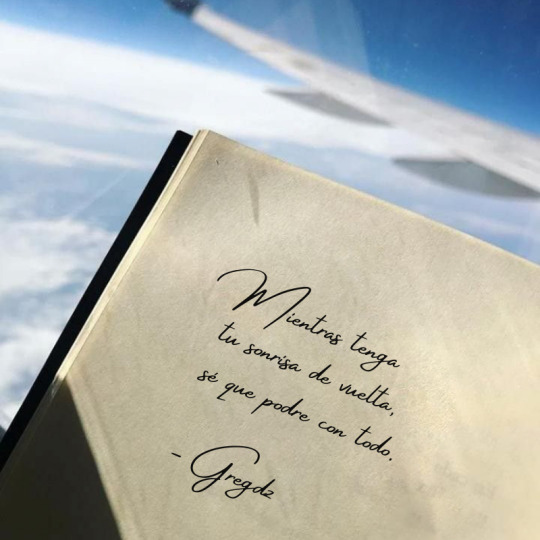 Mientras tenga
tu sonrisa de vuelta,
sé que podre con todo.
- Gregdz